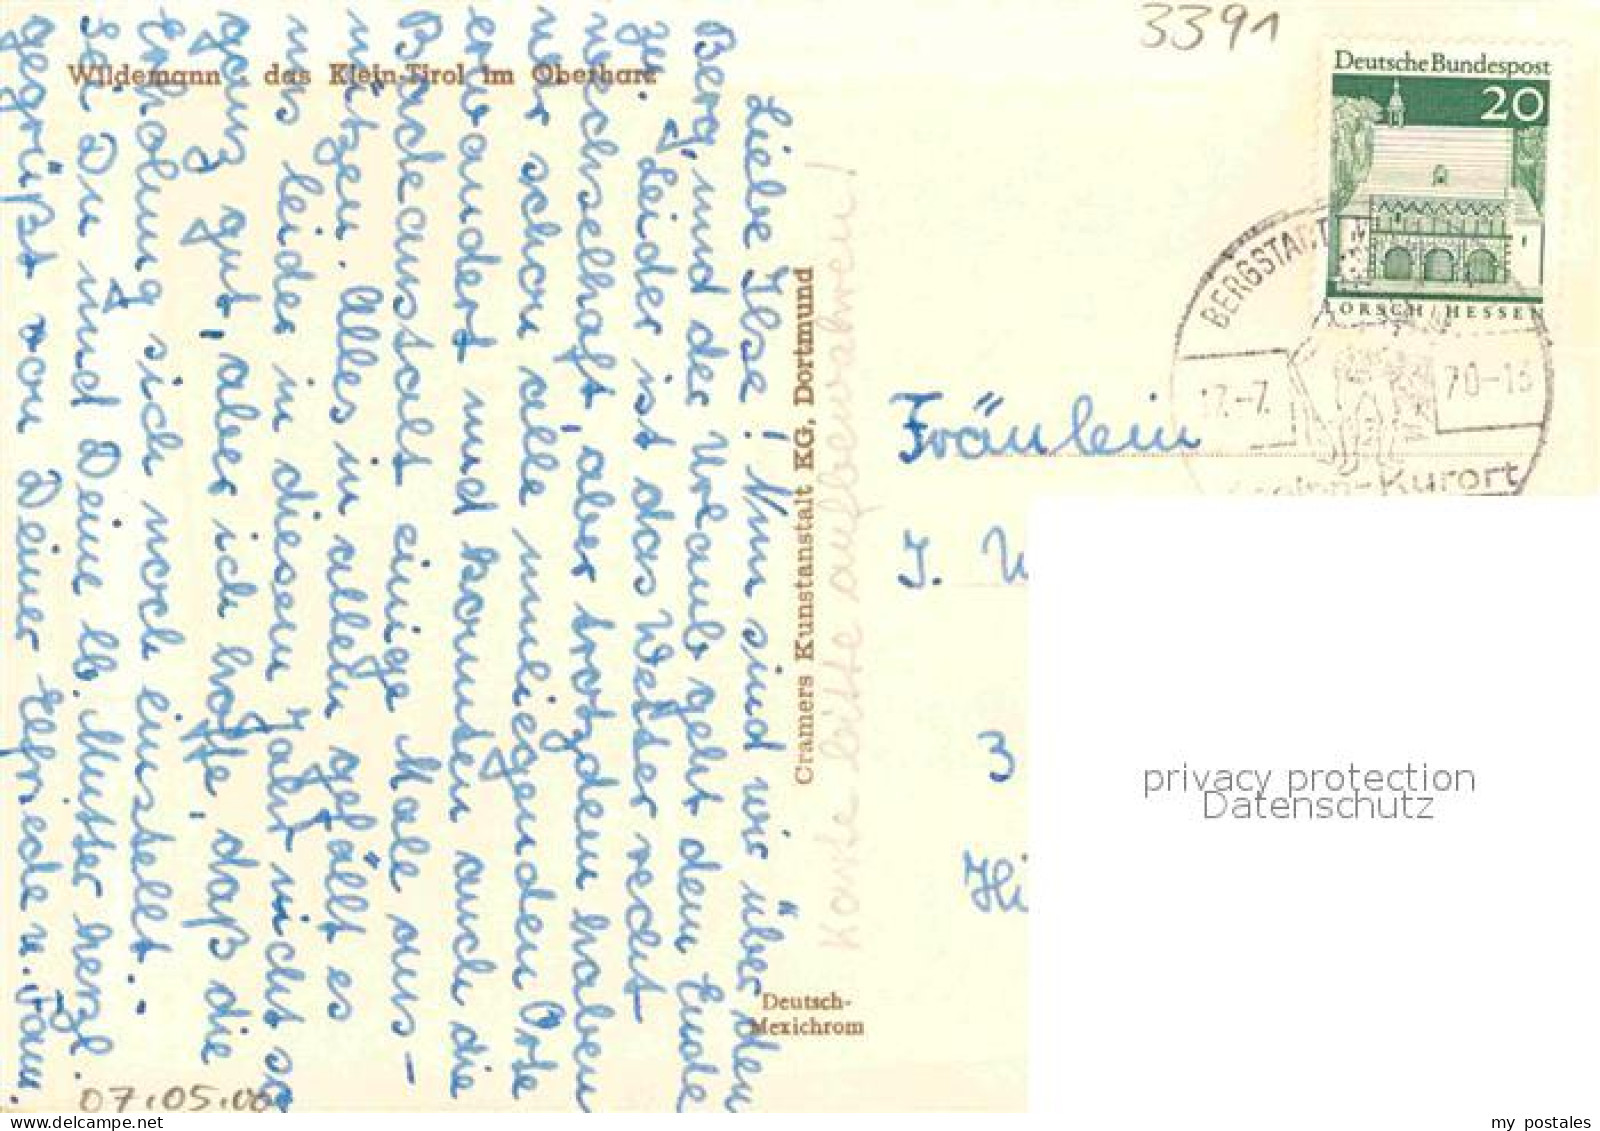 Wildemann - das Klein-Tirol im Oberharz
3391
Deutsche Bundespost
20
LORSCH / HESSEN
BERGSTADT
17.-7.
70-18
Kneipp-Kurort
Liebe Ilse! Nun sind wir über den
Berg, und der Urlaub geht dem Ende
zu. Leider ist das Wetter recht
wechselhaft, aber trotzdem haben
wir schon alle umliegenden Orte
erwandert und konnten auch die
Badeanstalt einige Male aus-
nützen. Alles in allem gefällt es
uns leider in diesem Jahr nicht so
ganz gut, aber ich hoffe, daß die
Erholung sich noch einstellt.
Sei Du und Deine lb. Mutter herzl.
gegrüßt von Deiner Elfriede u. Fam.
Cramers Kunstanstalt KG, Dortmund
Karte bitte aufbewahren!
Deutsch-
Mexichrom
Fräulein
J. W
3
Hi
privacy protection
Datenschutz
07.05.00
my postales